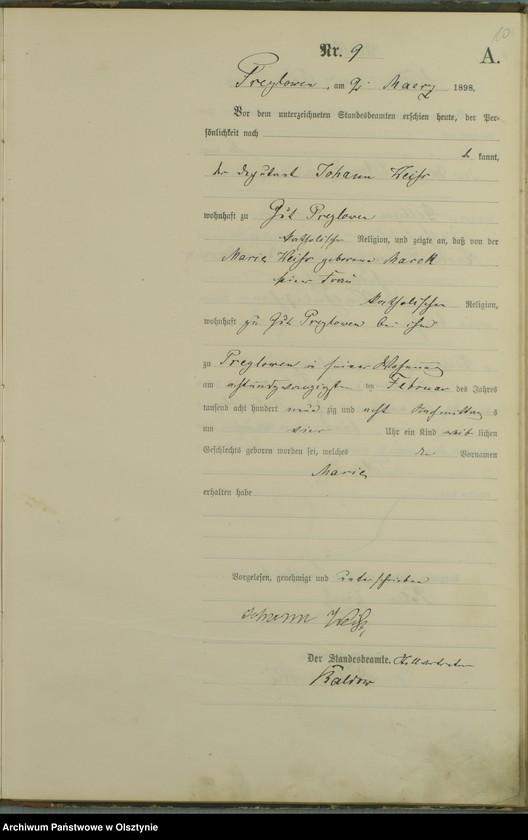 10
Nr. 9
A.
Preylowen, am 2. Maerz 1898.
Vor dem unterzeichneten Standesbeamten erschien heute, der Per-
sönlichkeit nach
be kannt,
der Deputant Johann Weiss
wohnhaft zu Gut Preylowen
katholischer Religion, und zeigte an, daß von der
Marie Weiss geborene Marok
seiner Frau
katholischer Religion,
wohnhaft zu Gut Preylowen bei ihm
zu Preylowen in seiner Wohnung
am achtundzwanzigsten ten Februar des Jahres
tausend acht hundert neun zig und acht Nachmittag s
um vier Uhr ein Kind weib lichen
Geschlechts geboren worden sei, welches den Vornamen
Marie
erhalten habe
Vorgelesen, genehmigt und unterschrieben
Johann Weiß
Der Standesbeamte. Stellvertreter
Archiwum Państwowe w Olsztynie